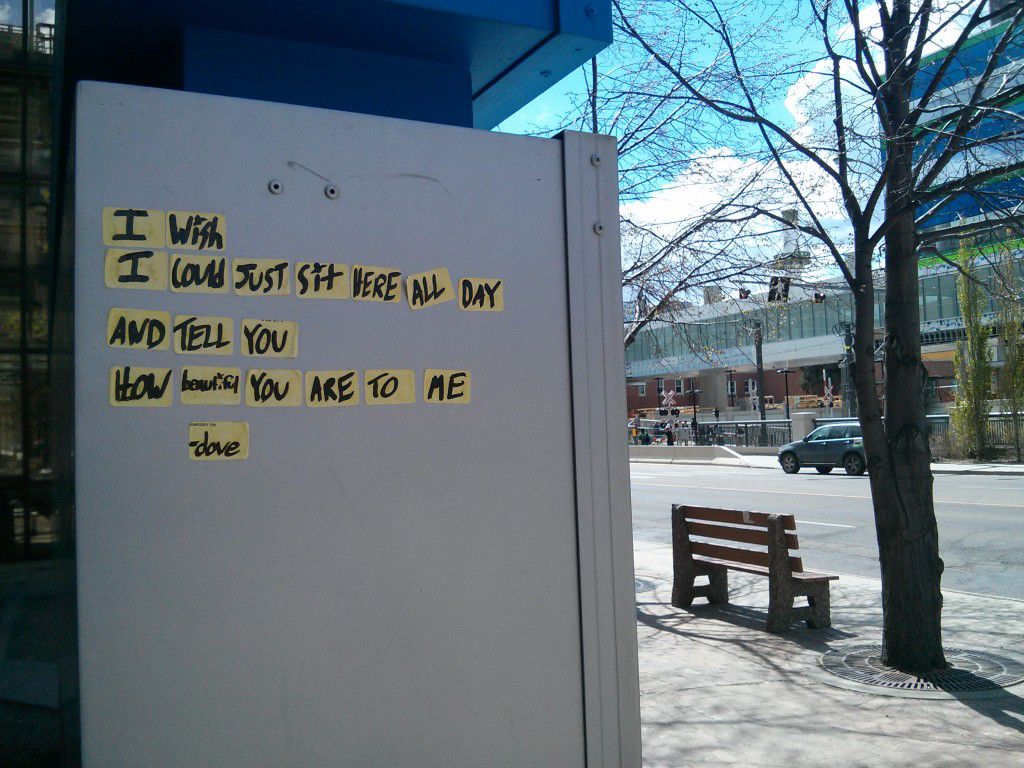 I Wish
I Could JUST Sit HERE ALL DAY
AND TELL YOU
HOW beautiful YOU ARE TO ME
-dove